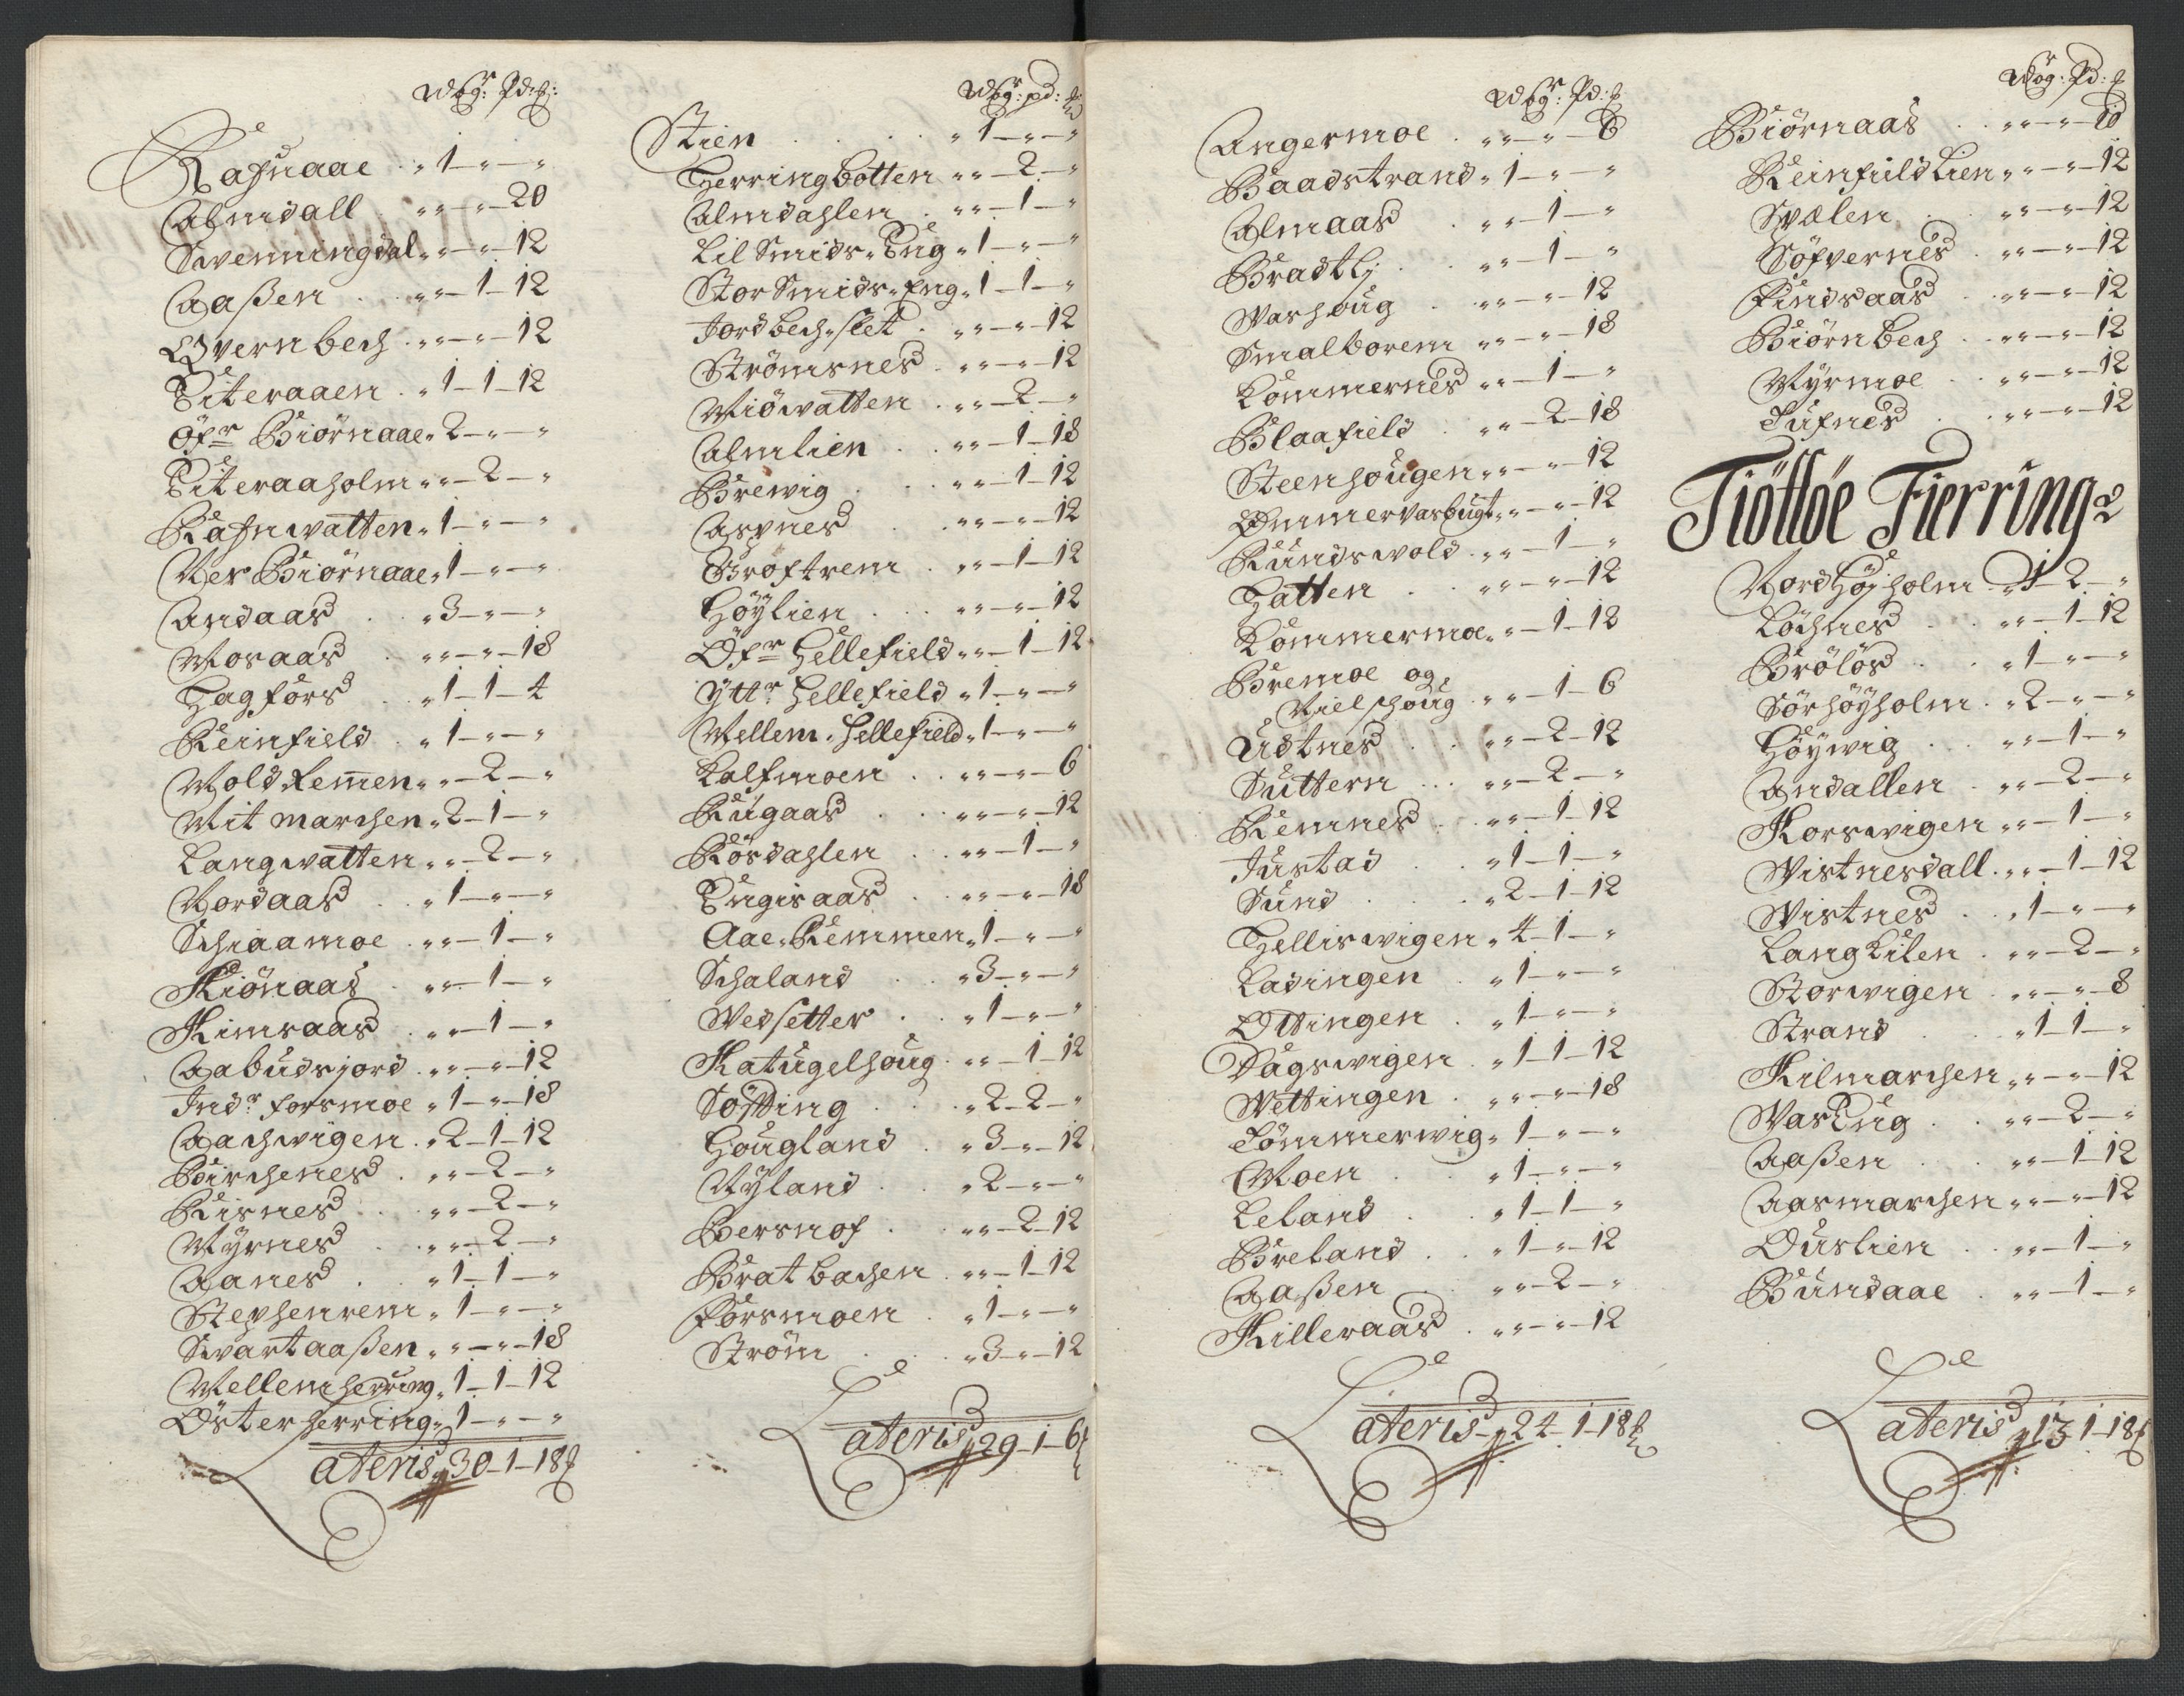 Wogr: Pd: ℔:
Rafnaae „ 1 – „ – „
Almdall „ „ – „ – 20
Swenningdal „ „ – „ – 12
Aaßen „ „ – 1 – 12
Qvernbech „ „ – „ – 12
Eiteraaen „ 1 – 1 – 12
Öfr Biörnaae „ 2 – „ – „
Eiteraaholm „ „ – 2 – „
Rafnwatten „ 1 – „ – „
Ner Biörnaae „ 1 – „ – „
Andaas „ 3 – „ – „
Mosaas „ „ – „ – 18
Hagfors „ 1 – 1 – 4
Reinfield „ 1 – „ – „
Wold Remen „ „ – 2 – „
Mit marchen „ 2 – 1 – „
Langwatten „ „ – 2 – „
Nordaas „ 1 – „ – „
Schiaamoe „ „ – 1 – „
Kiönaas „ „ – 1 – „
Kimsaas „ „ – 1 – „
Aabudsjord „ „ – „ – 12
Indr forsmoe „ 1 – „ – 18
Aachwigen „ 2 – 1 – 12
Birchenes „ „ – 2 – „
Risnes „ „ – 2 – „
Myrnes „ „ – 2 – „
Aanes „ 1 – 1 – „
Stephenrem „ 1 – „ – „
Swartaaßen „ „ – „ – 18
Mellem herring „ 1 – 1 – 12
Öster herring „ 1 – „ – „
Lateris „ 30 – 1 – 18 ℔
Wogr: pd: ℔
Stien „ 1 – „ – „
Herringbotten „ „ – 2 – „
Almdahlen „ „ – 1 – „
Lil Smids-Eng „ 1 – „ – „
Stor Smids-Eng „ 1 – 1 – „
Jordbech-slet „ „ – „ – 12
Strömsnes „ „ – „ – 12
Miöwatten „ „ – 2 – „
Almlien „ „ – 1 – 18
Brewig „ „ – 1 – 12
Aspnes „ „ – „ – 12
Groftrem „ „ – 1 – 12
Höylien „ „ – „ – 12
Öfr Hellefield „ „ – 1 – 12
Yttr Hellefield „ 1 – „ – „
Mellem-Hellefield „ 1 – „ – „
Kalfmoen „ „ – „ – 6
Rugaas „ „ – „ – 12
Rösdahlen „ „ – 1 – „
Engisaas „ „ – „ – 18
Aae-Remmen „ 1 – „ – „
Schaland „ 3 – „ – „
Wedsetter „ 1 – „ – „
Katugelhoug „ „ – 1 – 12
Söfting „ 2 – 2 – „
Hougland „ 3 – „ – 12
Nyland „ 2 – „ – „
Bersnof „ „ – 2 – 12
Bratbachen „ „ – 1 – 12
Forsmoen „ 1 – „ – „
Ström „ 3 – „ – 12
Lateris „ 29 – 1 – 6 ℔
Wogr: Pd: ℔
Angermoe „ „ – „ – 6
Baadstrand „ 1 – „ – „
Almaas „ „ – 1 – „
Bradtlj „ „ – 1 – „
Warhoug „ „ – „ – 12
Smalborem „ „ – „ – 18
Kommernes „ „ – 1 – „
Blaafield „ „ – 2 – 18
Steenhougen „ „ – „ – 12
Ømmervasbugt „ „ – „ – 12
Rundswold „ „ – 1 – „
Hatten „ „ – „ – 12
Kommermoe „ „ – 1 – 12
Bremoe og
Nielshoug „ „ – 1 – 6
Udtnes „ „ – 2 – 12
Suttern „ „ – 2 – „
Remnes „ „ – 1 – 12
Justad „ 1 – 1 – „
Sund „ 2 – 1 – 12
Helliswigen „ 4 – 1 – „
Ladingen „ 1 – „ – „
Ottingen „ 1 – „ – „
Dagswigen „ 1 – 1 – 12
Wettingen „ „ – „ – 18
Tömmerwig „ 1 – „ – „
Moen „ 1 – „ – „
Leland „ 1 – 1 – „
Breland „ 1 – „ – 12
Aaßen „ „ – 2 – „
Killeraas „ „ – „ – 12
Lateris „ 24 – 1 – 18 ℔
Wogr: Pd: ℔
Biörnaas „ „ – „ – 18
Reinfield Lien „ „ – „ – 12
Svælen „ „ – „ – 12
Söfvernes „ „ – „ – 12
Findsaas „ „ – „ – 12
Biörnbech „ „ – „ – 12
Myrmoe „ „ – „ – 12
Tufnes „ „ – „ – 12
Tiötlöe Fierring
Nord Höjholm „ 1 – 2 – „
Löchnes „ „ – 1 – 12
Brölös „ 1 – „ – „
Sörhöyholm „ 2 – „ – „
Höywig „ „ – 1 – „
Andallen „ „ – 2 – „
Korswigen „ „ – 1 – „
Wistnesdall „ „ – 1 – 12
Wistnes „ 1 – „ – „
Langkilen „ „ – 2 – „
Storwigen „ „ – „ – 8
Strand „ 1 – 1 – „
Kilmarchen „ „ – „ – 12
Waseng „ „ – 2 – „
Aaßen „ „ – 1 – 12
Aasmarchen „ „ – „ – 12
Duslien „ „ – 1 – „
Bundaae „ „ – 1 – „
Lateris „ 13 – 1 – 18 ℔